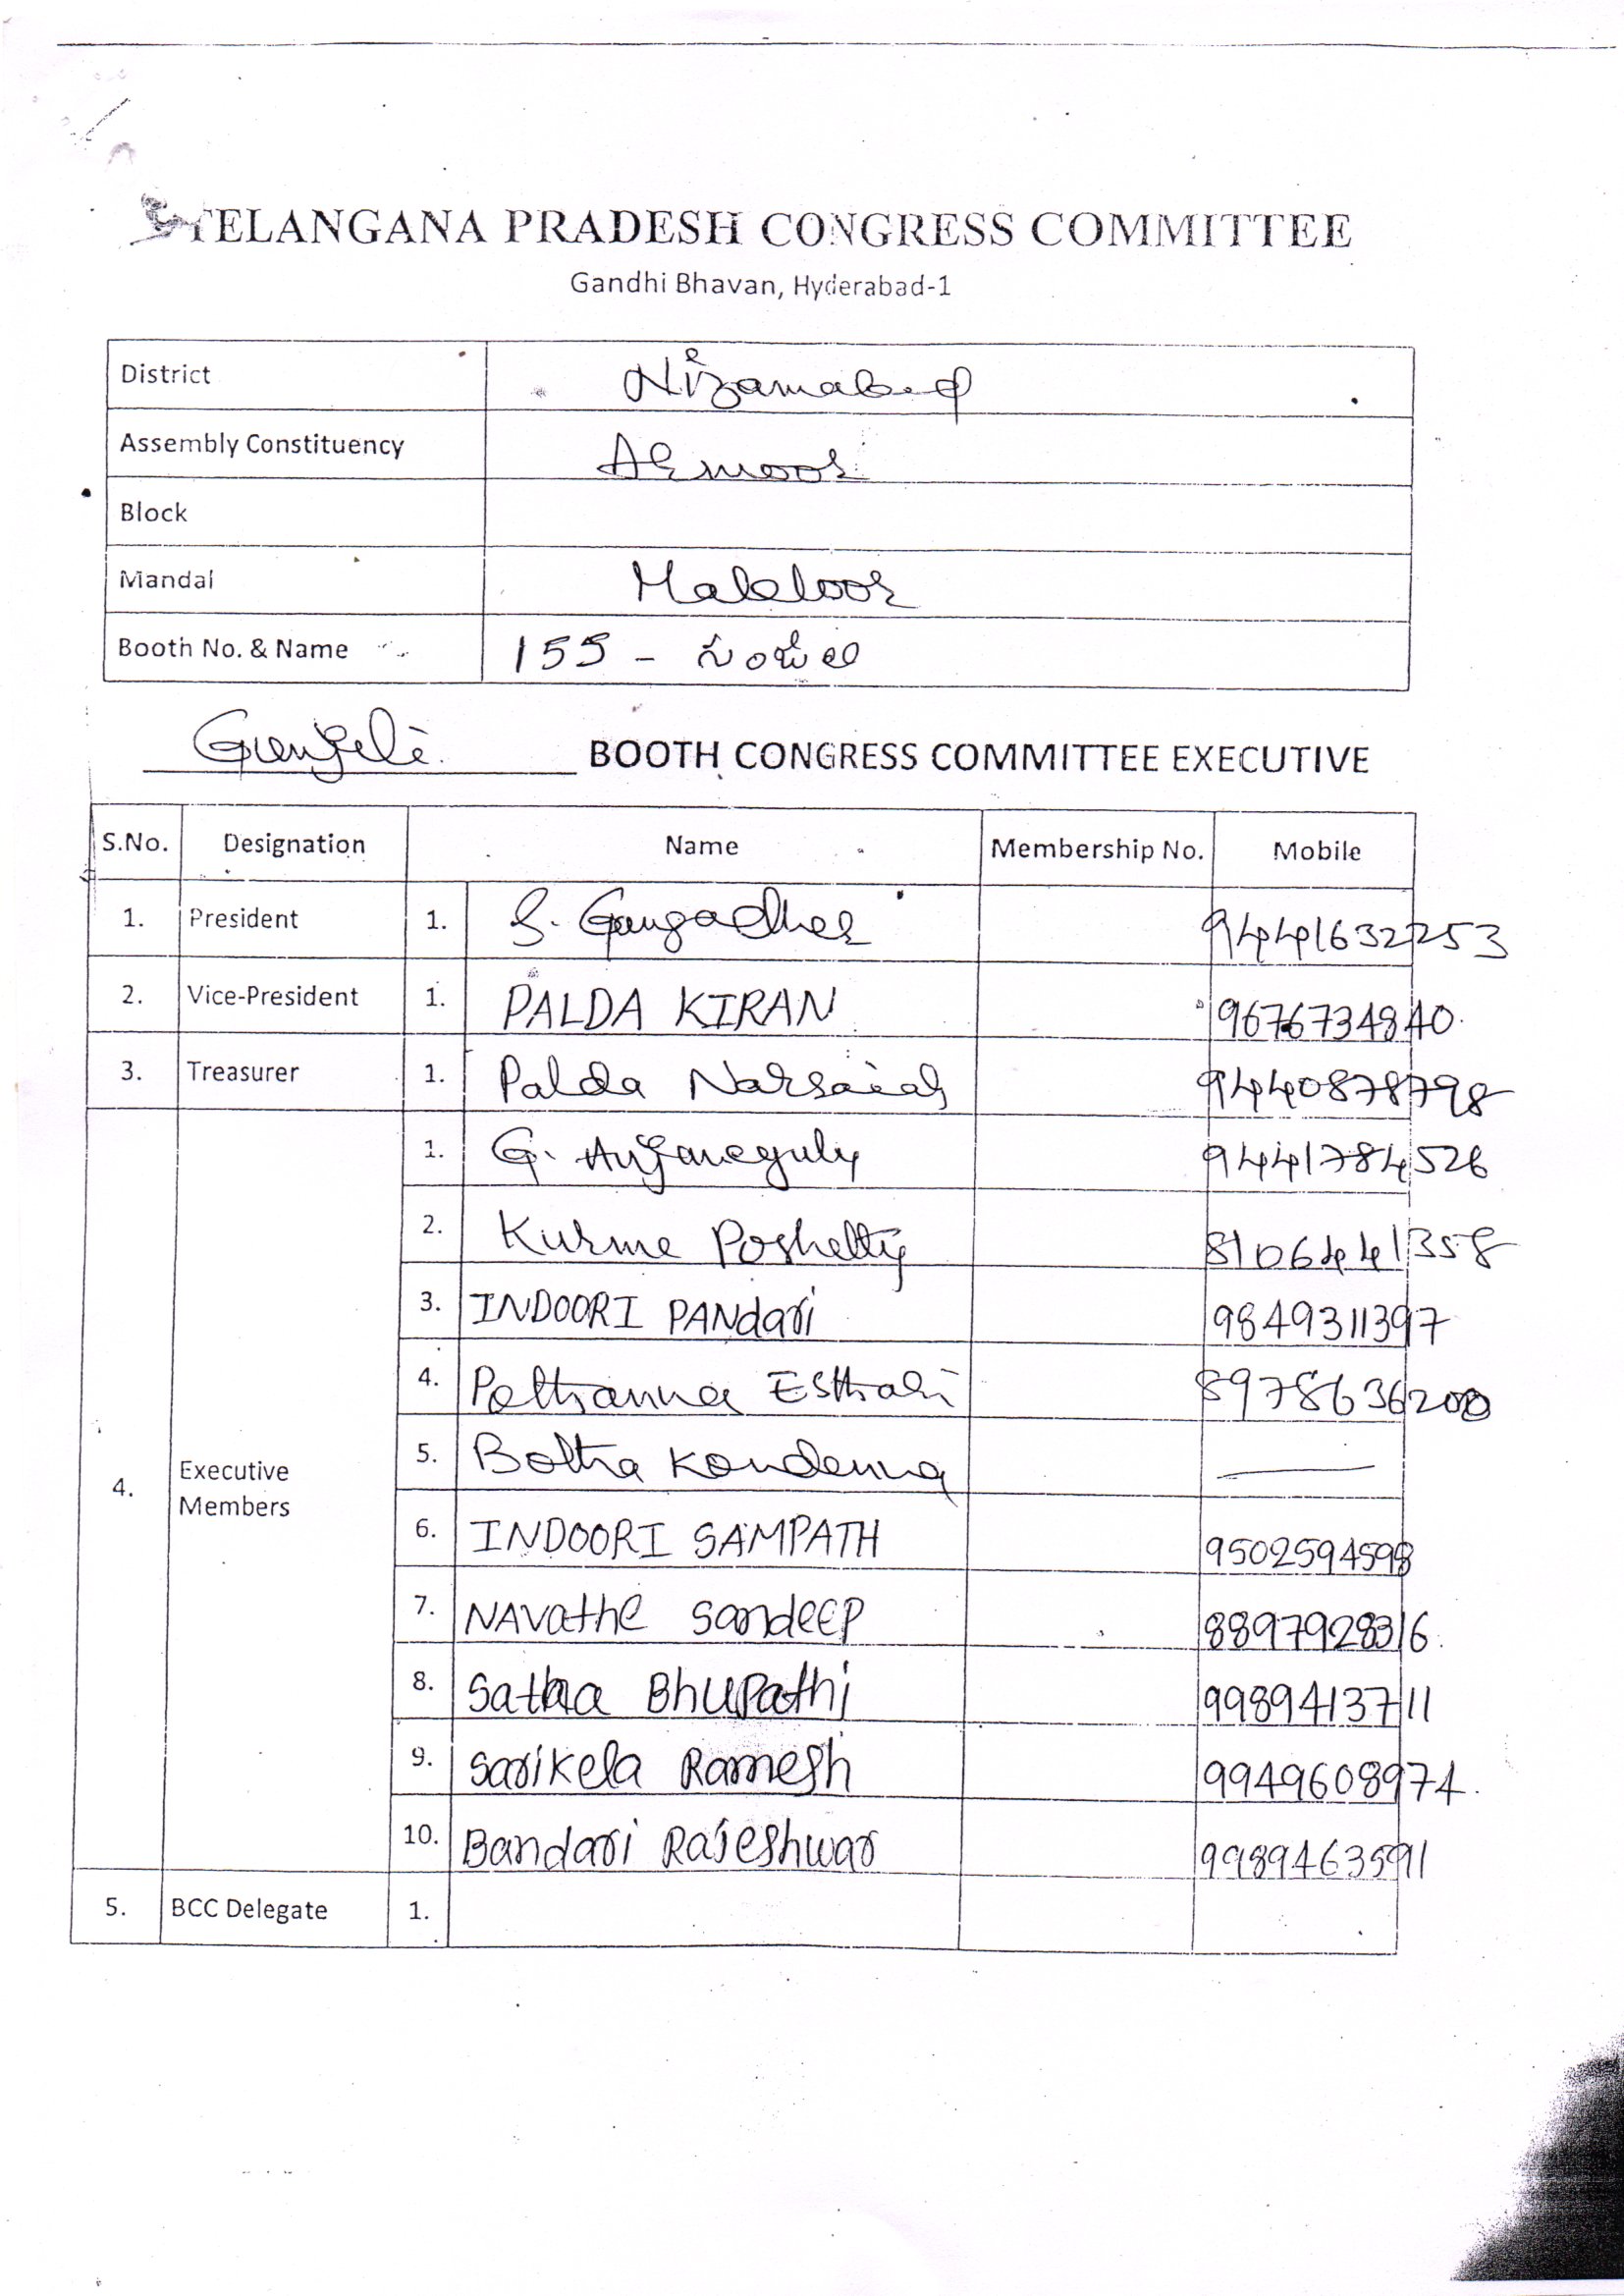 TELANGANA PRADESH CONGRESS COMMITTEE
Gandhi Bhavan, Hyderabad-1
District Nizamabad
Assembly Constituency Armoor
Block
Mandal Makloor
Booth No. & Name 155 - గుంజిలి
Gunjili BOOTH CONGRESS COMMITTEE EXECUTIVE
S.No. Designation Name Membership No. Mobile
1. President 1. S. Gangadhar 9441632253
2. Vice-President 1. PALDA KIRAN 9676734840
3. Treasurer 1. Palda Narsaiah 9440878798
1. G. Anjaneyulu 9441784526
2. Kurme Poshetty 8106441358
3. INDOORI PANdari 9849311397
4. Pothanna Esthari 8978636200
4. Executive Members
5. Botha Kondanna
6. INDOORI SAMPATH 9502594598
7. NAVathe SandeeP 8897928316
8. Satha BhuPathi 9989413711
9. Sarikela Ramesh 9949608974
10. Bandari Rajeshwar 9989463591
5. BCC Delegate 1.